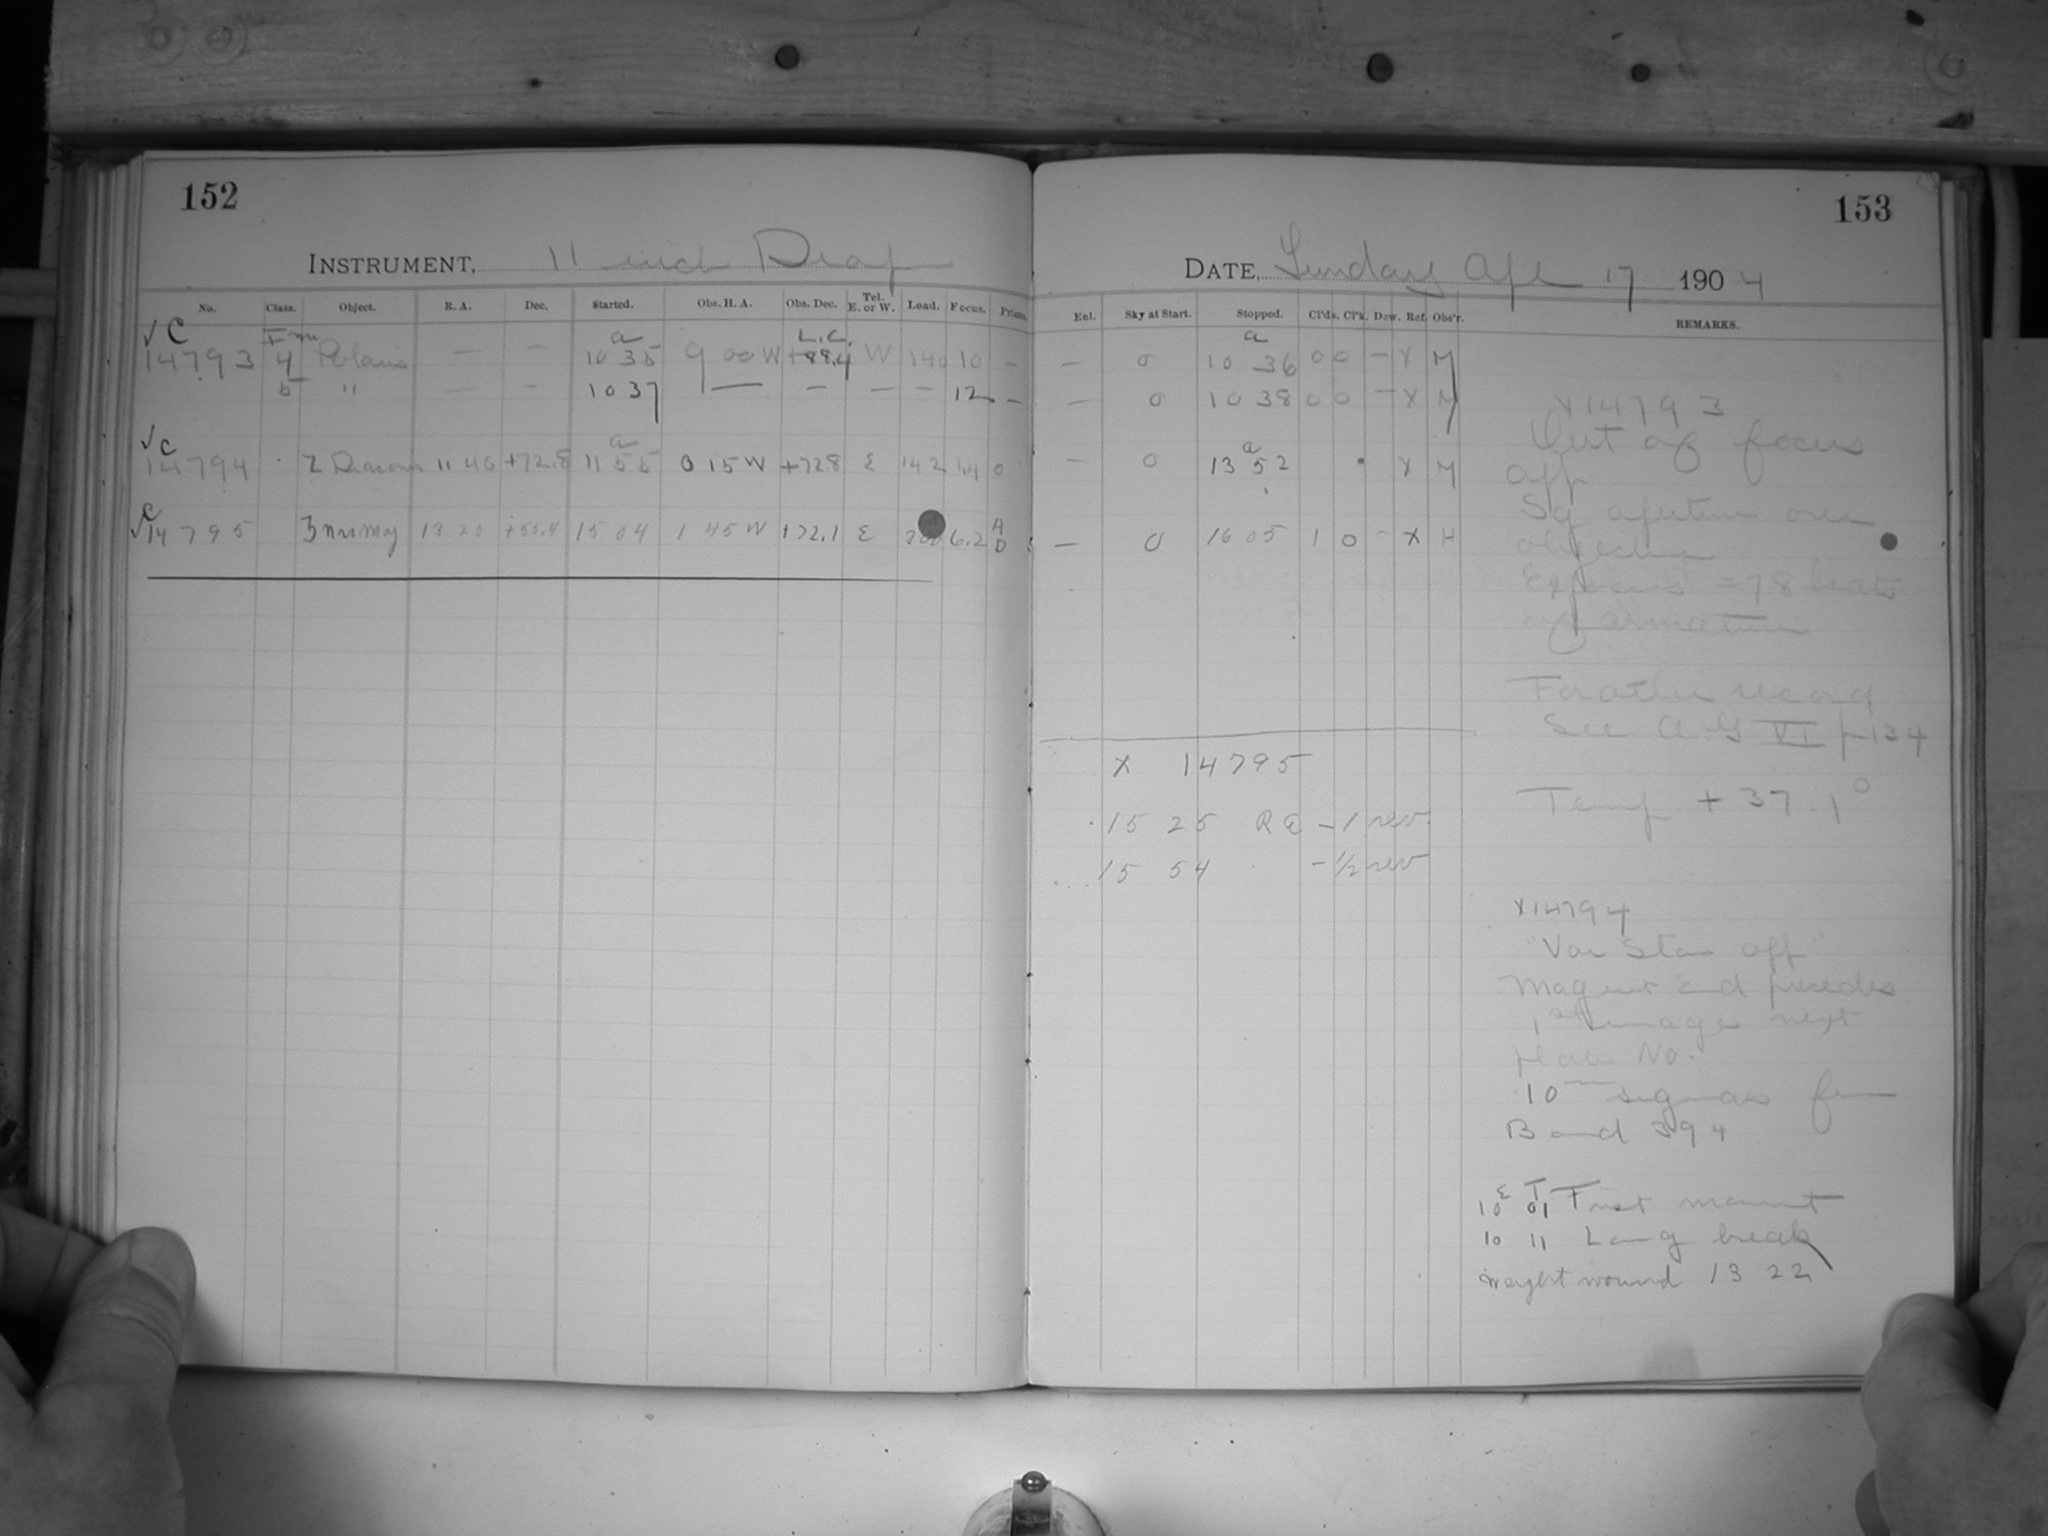 152
INSTRUMENT, 11 inch Drap
No. Class. Object. R. A. Dec. Started. Obs. H. A. Obs. Dec. Tel. E. or W. Load. Focus. Prisms.
√ C a L.C.
14793 4 Polaris — — 10 35 9 00 W +88.4 W 140 10 —
5 " — — 10 37 — — — — 12 —
√ C a
14794 Z Draconis 11 46 +72.8 11 55 0 15 W +728 E 142 0
√ C
14795 13 20 +55.4 15 04 1 45 W +72.1 E 6.2 A D
153
DATE, Sunday Apl 17 1904
Enl. Sky at Start. Stopped. Cl'ds. Cl'k. Dew. Ref. Obs'r. REMARKS.
a
— 0 10 36 0 0 — X M
— 0 10 38 0 0 — X M
a
— 0 13 52 X M
— 0 16 05 1 0 - X H
X 14795
15 25 R E – 1 rev.
15 54 – ½ rev
X 14793
Out of focus
app
Sq aperture over
objective
Exposures = 78 beats
of armature
For other record
See A G VI p 134
Temp + 37.1°
X 14794
"Var Star app"
Magnet End precedes
1st image next
plate No.
10 signals from
B and 394
E T
10 01 First
10 11 Long break
weight wound 13 22